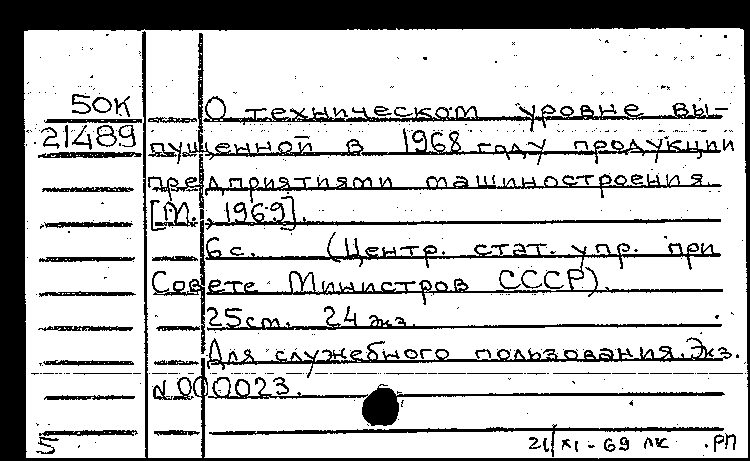 50К
21489
О техническом уровне вы-
пущенной в 1968 году продукции
предприятиями машиностроения.
[М., 1969].
6 с. (Центр. стат. упр. при
Совете Министров СССР).
25 см. 24 экз.
Для служебного пользования. Экз.
N 000023.
5
21/XI-69 ЛК . РП